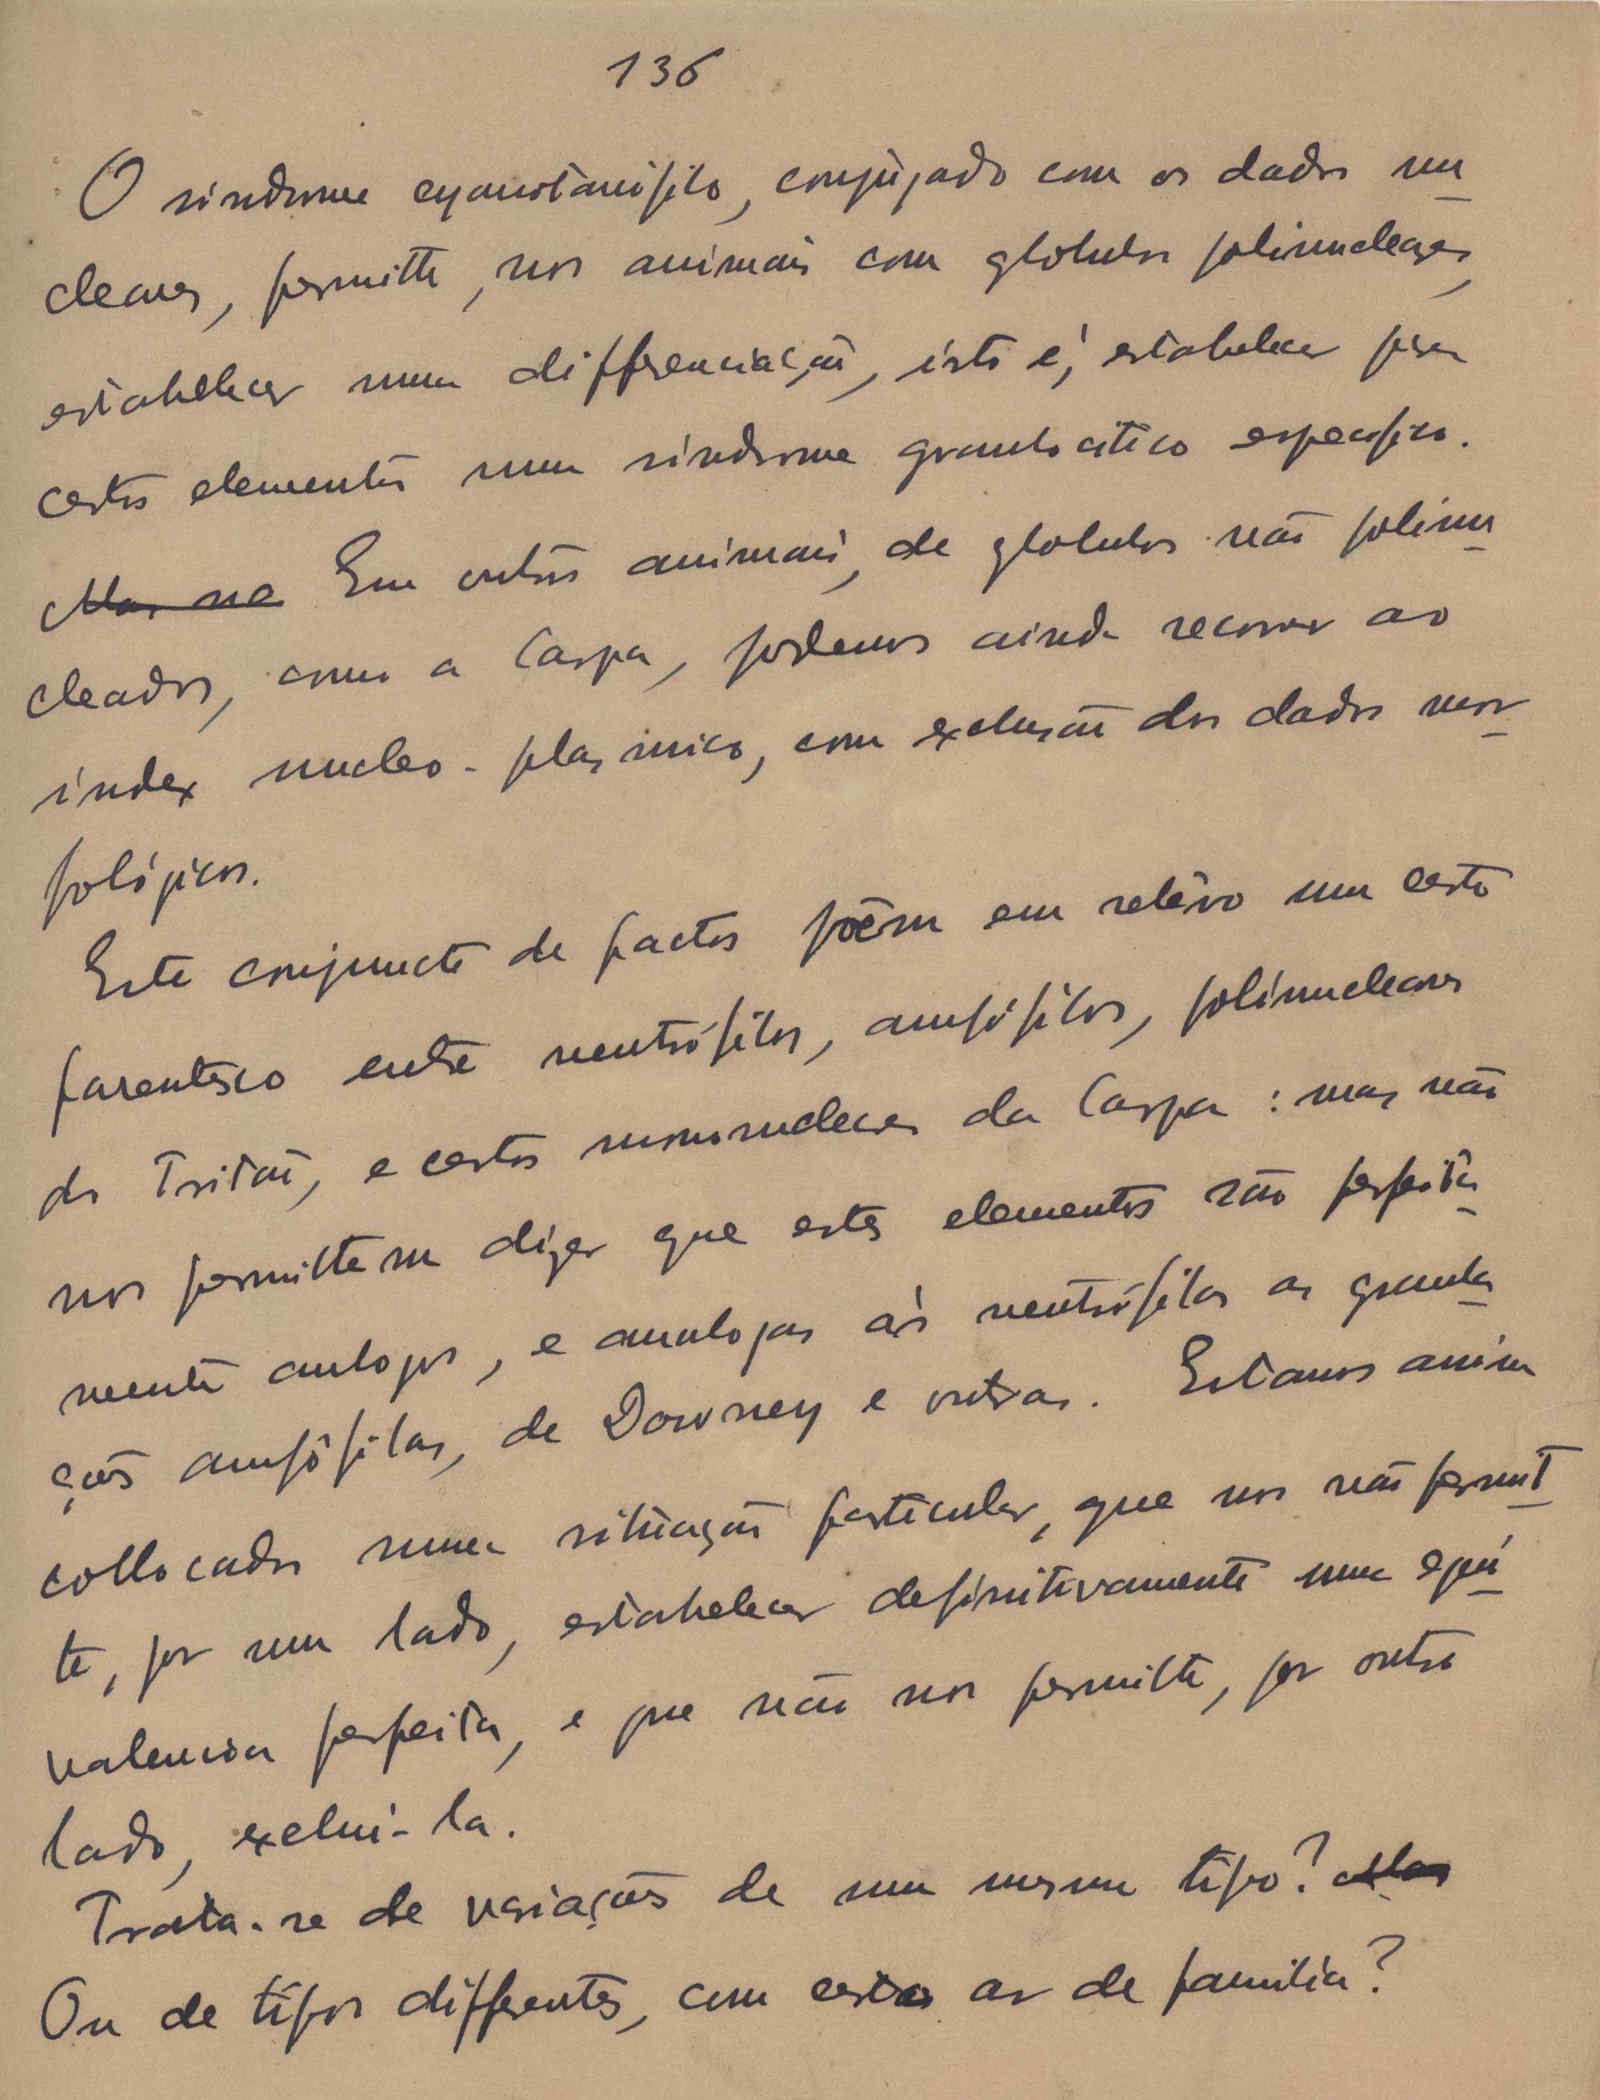 136
O sindrome cyanotanófilo, conjugado com os dados nu
cleares, permitte, nos animais com globulos polinucleares,
estabelecer uma differenciação, isto é, estabelecer para
certos elementos um sindrome granulocitico especifico.
Mas na Em outros animais, de globulos não polinu
cleados, como a Carpa, podemos ainda recorrer ao
index nucleo-plasmico, com exclusão dos dados mor
fológicos.
Este conjuncto de factos põem em relêvo um certo
parentesco entre neutrófilos, amfófilos, polinucleares
do Tritão, e certos mononucleares da Carpa: mas não
nos permittem dizer que estes elementos são perfeita
mente analogos, e analogas às neutrófilas as granula
ções amfófilas, de Downey e outras. Estamos assim
collocados numa situação particular, que nos não permit
te, por um lado, estabelecer definitivamente uma equi
valencia perfeita, e que não nos permitte, por outro
lado, exclui-la.
Trata-se de variações de um mesmo tipo? Mas
Ou de tipos differentes, com certo ar de familia?